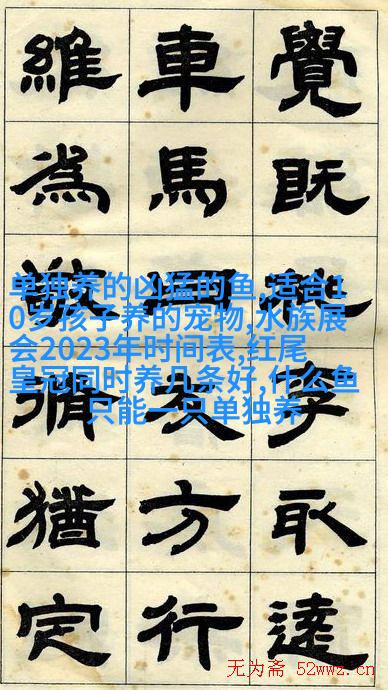 覺既李取遠
車馬方行
維為脩猶定
单独养的凶猛的鱼,适合1
0岁孩子养的宠物,水族展
会2023年时间表,红尾
皇冠同时养几条好,什么鱼
只能一只单独养
无为斋 52wwz.cn